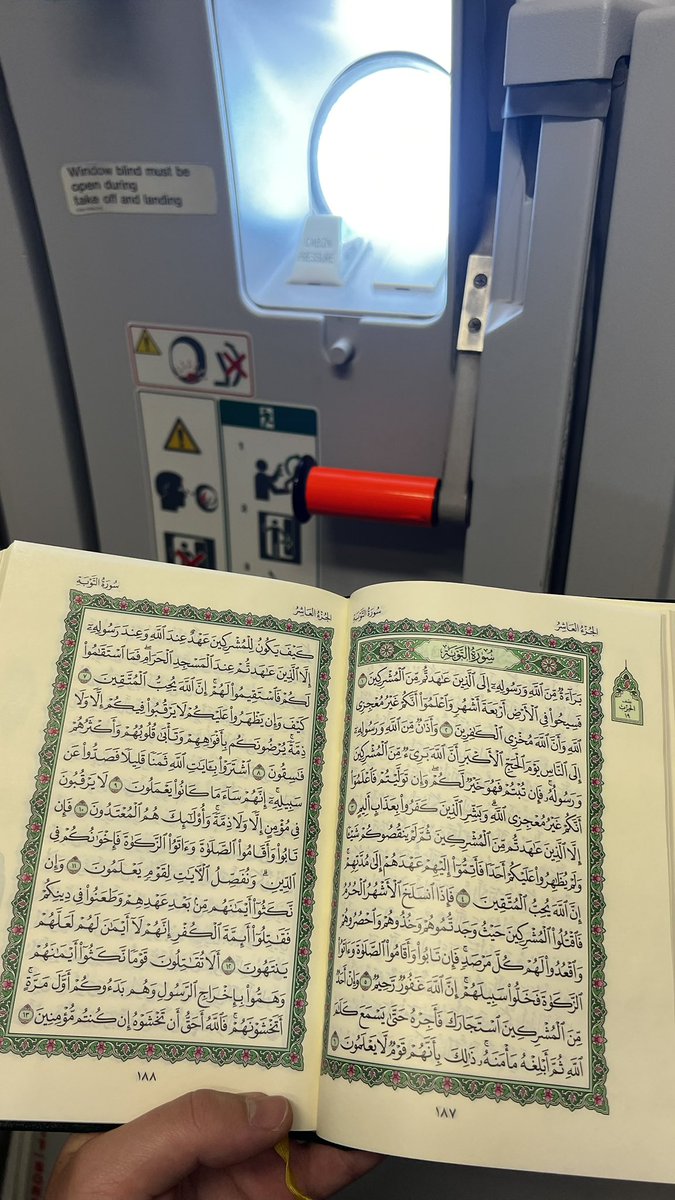 Window blind must be
open during
take off and landing
CABIN
PRESSURE
1
2
سُورَةُ التَّوْبَةِ
الجُزْءُ العَاشِرُ
سُورَةُ التَّوْبَةِ
الحِزْب
١٩
بَرَآءَةٌ مِّنَ ٱللَّهِ وَرَسُولِهِۦٓ إِلَى ٱلَّذِينَ عَٰهَدتُّم مِّنَ ٱلْمُشْرِكِينَ ١
فَسِيحُوا۟ فِى ٱلْأَرْضِ أَرْبَعَةَ أَشْهُرٍ وَٱعْلَمُوٓا۟ أَنَّكُمْ غَيْرُ مُعْجِزِى
ٱللَّهِ وَأَنَّ ٱللَّهَ مُخْزِى ٱلْكَٰفِرِينَ ٢ وَأَذَٰنٌ مِّنَ ٱللَّهِ وَرَسُولِهِۦٓ
إِلَى ٱلنَّاسِ يَوْمَ ٱلْحَجِّ ٱلْأَكْبَرِ أَنَّ ٱللَّهَ بَرِىٓءٌ مِّنَ ٱلْمُشْرِكِينَ
وَرَسُولُهُۥ فَإِن تُبْتُمْ فَهُوَ خَيْرٌ لَّكُمْ وَإِن تَوَلَّيْتُمْ فَٱعْلَمُوٓا۟
أَنَّكُمْ غَيْرُ مُعْجِزِى ٱللَّهِ وَبَشِّرِ ٱلَّذِينَ كَفَرُوا۟ بِعَذَابٍ أَلِيمٍ ٣
إِلَّا ٱلَّذِينَ عَٰهَدتُّم مِّنَ ٱلْمُشْرِكِينَ ثُمَّ لَمْ يَنقُصُوكُمْ شَيْـًٔا
وَلَمْ يُظَٰهِرُوا۟ عَلَيْكُمْ أَحَدًا فَأَتِمُّوٓا۟ إِلَيْهِمْ عَهْدَهُمْ إِلَىٰ مُدَّتِهِمْ
إِنَّ ٱللَّهَ يُحِبُّ ٱلْمُتَّقِينَ ٤ فَإِذَا ٱنسَلَخَ ٱلْأَشْهُرُ ٱلْحُرُمُ
فَٱقْتُلُوا۟ ٱلْمُشْرِكِينَ حَيْثُ وَجَدتُّمُوهُمْ وَخُذُوهُمْ وَٱحْصُرُوهُمْ
وَٱقْعُدُوا۟ لَهُمْ كُلَّ مَرْصَدٍ فَإِن تَابُوا۟ وَأَقَامُوا۟ ٱلصَّلَوٰةَ وَءَاتَوُا۟
ٱلزَّكَوٰةَ فَخَلُّوا۟ سَبِيلَهُمْ إِنَّ ٱللَّهَ غَفُورٌ رَّحِيمٌ ٥ وَإِنْ أَحَدٌ
مِّنَ ٱلْمُشْرِكِينَ ٱسْتَجَارَكَ فَأَجِرْهُ حَتَّىٰ يَسْمَعَ كَلَٰمَ
ٱللَّهِ ثُمَّ أَبْلِغْهُ مَأْمَنَهُۥ ذَٰلِكَ بِأَنَّهُمْ قَوْمٌ لَّا يَعْلَمُونَ ٦
١٨٧
الجُزْءُ العَاشِرُ
سُورَةُ التَّوْبَةِ
كَيْفَ يَكُونُ لِلْمُشْرِكِينَ عَهْدٌ عِندَ ٱللَّهِ وَعِندَ رَسُولِهِۦٓ
إِلَّا ٱلَّذِينَ عَٰهَدتُّمْ عِندَ ٱلْمَسْجِدِ ٱلْحَرَامِ فَمَا ٱسْتَقَٰمُوا۟
لَكُمْ فَٱسْتَقِيمُوا۟ لَهُمْ إِنَّ ٱللَّهَ يُحِبُّ ٱلْمُتَّقِينَ ٧
كَيْفَ وَإِن يَظْهَرُوا۟ عَلَيْكُمْ لَا يَرْقُبُوا۟ فِيكُمْ إِلًّا وَلَا
ذِمَّةً يُرْضُونَكُم بِأَفْوَٰهِهِمْ وَتَأْبَىٰ قُلُوبُهُمْ وَأَكْثَرُهُمْ
فَٰسِقُونَ ٨ ٱشْتَرَوْا۟ بِـَٔايَٰتِ ٱللَّهِ ثَمَنًا قَلِيلًا فَصَدُّوا۟ عَن
سَبِيلِهِۦٓ إِنَّهُمْ سَآءَ مَا كَانُوا۟ يَعْمَلُونَ ٩ لَا يَرْقُبُونَ
فِى مُؤْمِنٍ إِلًّا وَلَا ذِمَّةً وَأُو۟لَٰٓئِكَ هُمُ ٱلْمُعْتَدُونَ ١٠ فَإِن
تَابُوا۟ وَأَقَامُوا۟ ٱلصَّلَوٰةَ وَءَاتَوُا۟ ٱلزَّكَوٰةَ فَإِخْوَٰنُكُمْ فِى
ٱلدِّينِ وَنُفَصِّلُ ٱلْـَٔايَٰتِ لِقَوْمٍ يَعْلَمُونَ ١١ وَإِن
نَّكَثُوٓا۟ أَيْمَٰنَهُم مِّنۢ بَعْدِ عَهْدِهِمْ وَطَعَنُوا۟ فِى دِينِكُمْ
فَقَٰتِلُوٓا۟ أَئِمَّةَ ٱلْكُفْرِ إِنَّهُمْ لَآ أَيْمَٰنَ لَهُمْ لَعَلَّهُمْ
يَنتَهُونَ ١٢ أَلَا تُقَٰتِلُونَ قَوْمًا نَّكَثُوٓا۟ أَيْمَٰنَهُمْ
وَهَمُّوا۟ بِإِخْرَاجِ ٱلرَّسُولِ وَهُم بَدَءُوكُمْ أَوَّلَ مَرَّةٍ
أَتَخْشَوْنَهُمْ فَٱللَّهُ أَحَقُّ أَن تَخْشَوْهُ إِن كُنتُم مُّؤْمِنِينَ ١٣
١٨٨